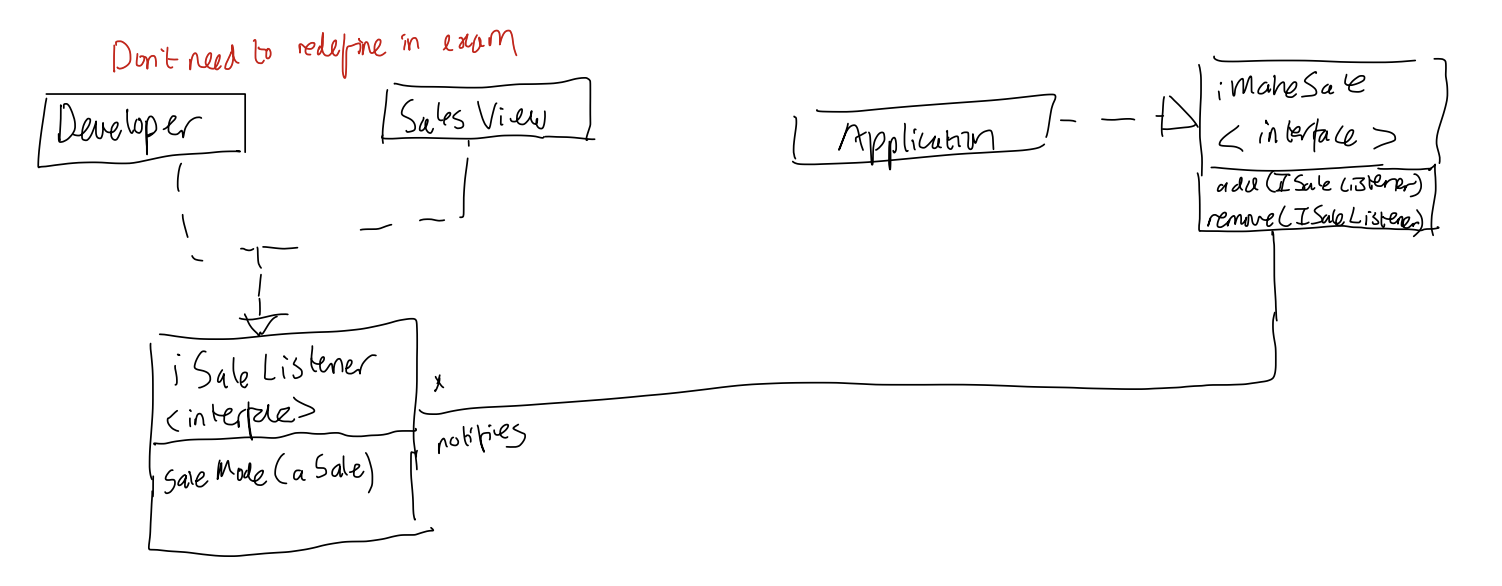 Don't need to redefine in exam
Developer
Sales View
Application
iMakeSale
< interface >
add(ISaleListener)
remove(ISaleListener)
iSaleListener
<interface>
*
notifies
SaleMade(aSale)